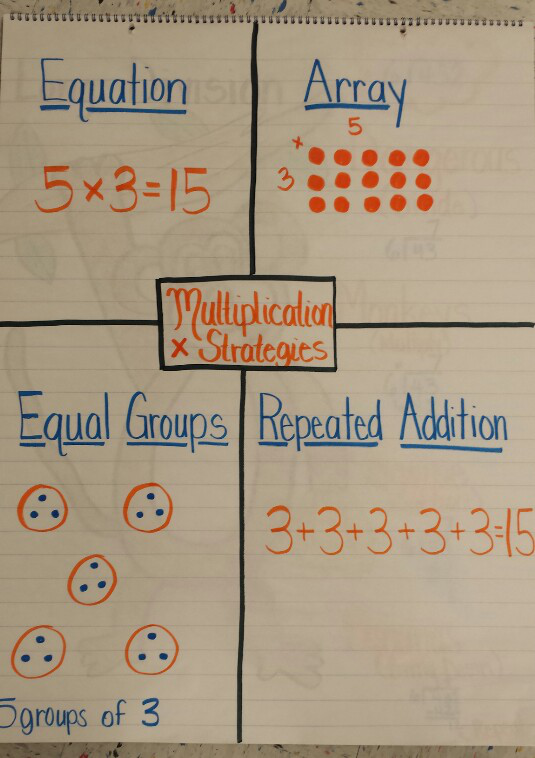 Equation
5×3=15
Array
5
×
3
Multiplication
× Strategies
Equal Groups
5 groups of 3
Repeated Addition
3+3+3+3+3=15